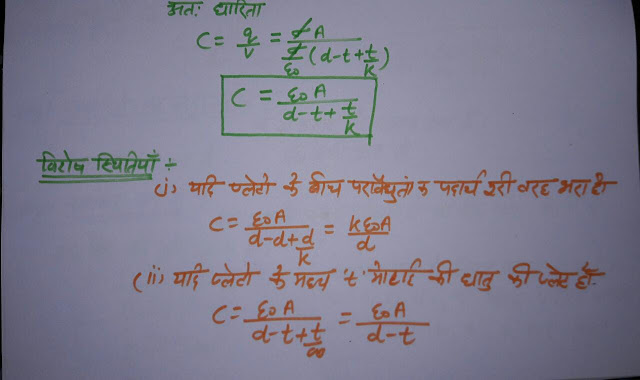 अतः धारिता
C = q/v = σA / σ/ε0 (d-t+t/k)
C = ε0A / d-t+t/k
विशेष स्थितियाँ ÷
(i) यदि प्लेटो के बीच परावैधुतां क पदार्थ पूरी तरह भरा हो
C = ε0A / d-d+d/k = kε0A / d
(ii) यदि प्लेटो के मध्य 't' मोटाई की धातु की प्लेट हो.
C = ε0A / d-t+t/∞ = ε0A / d-t